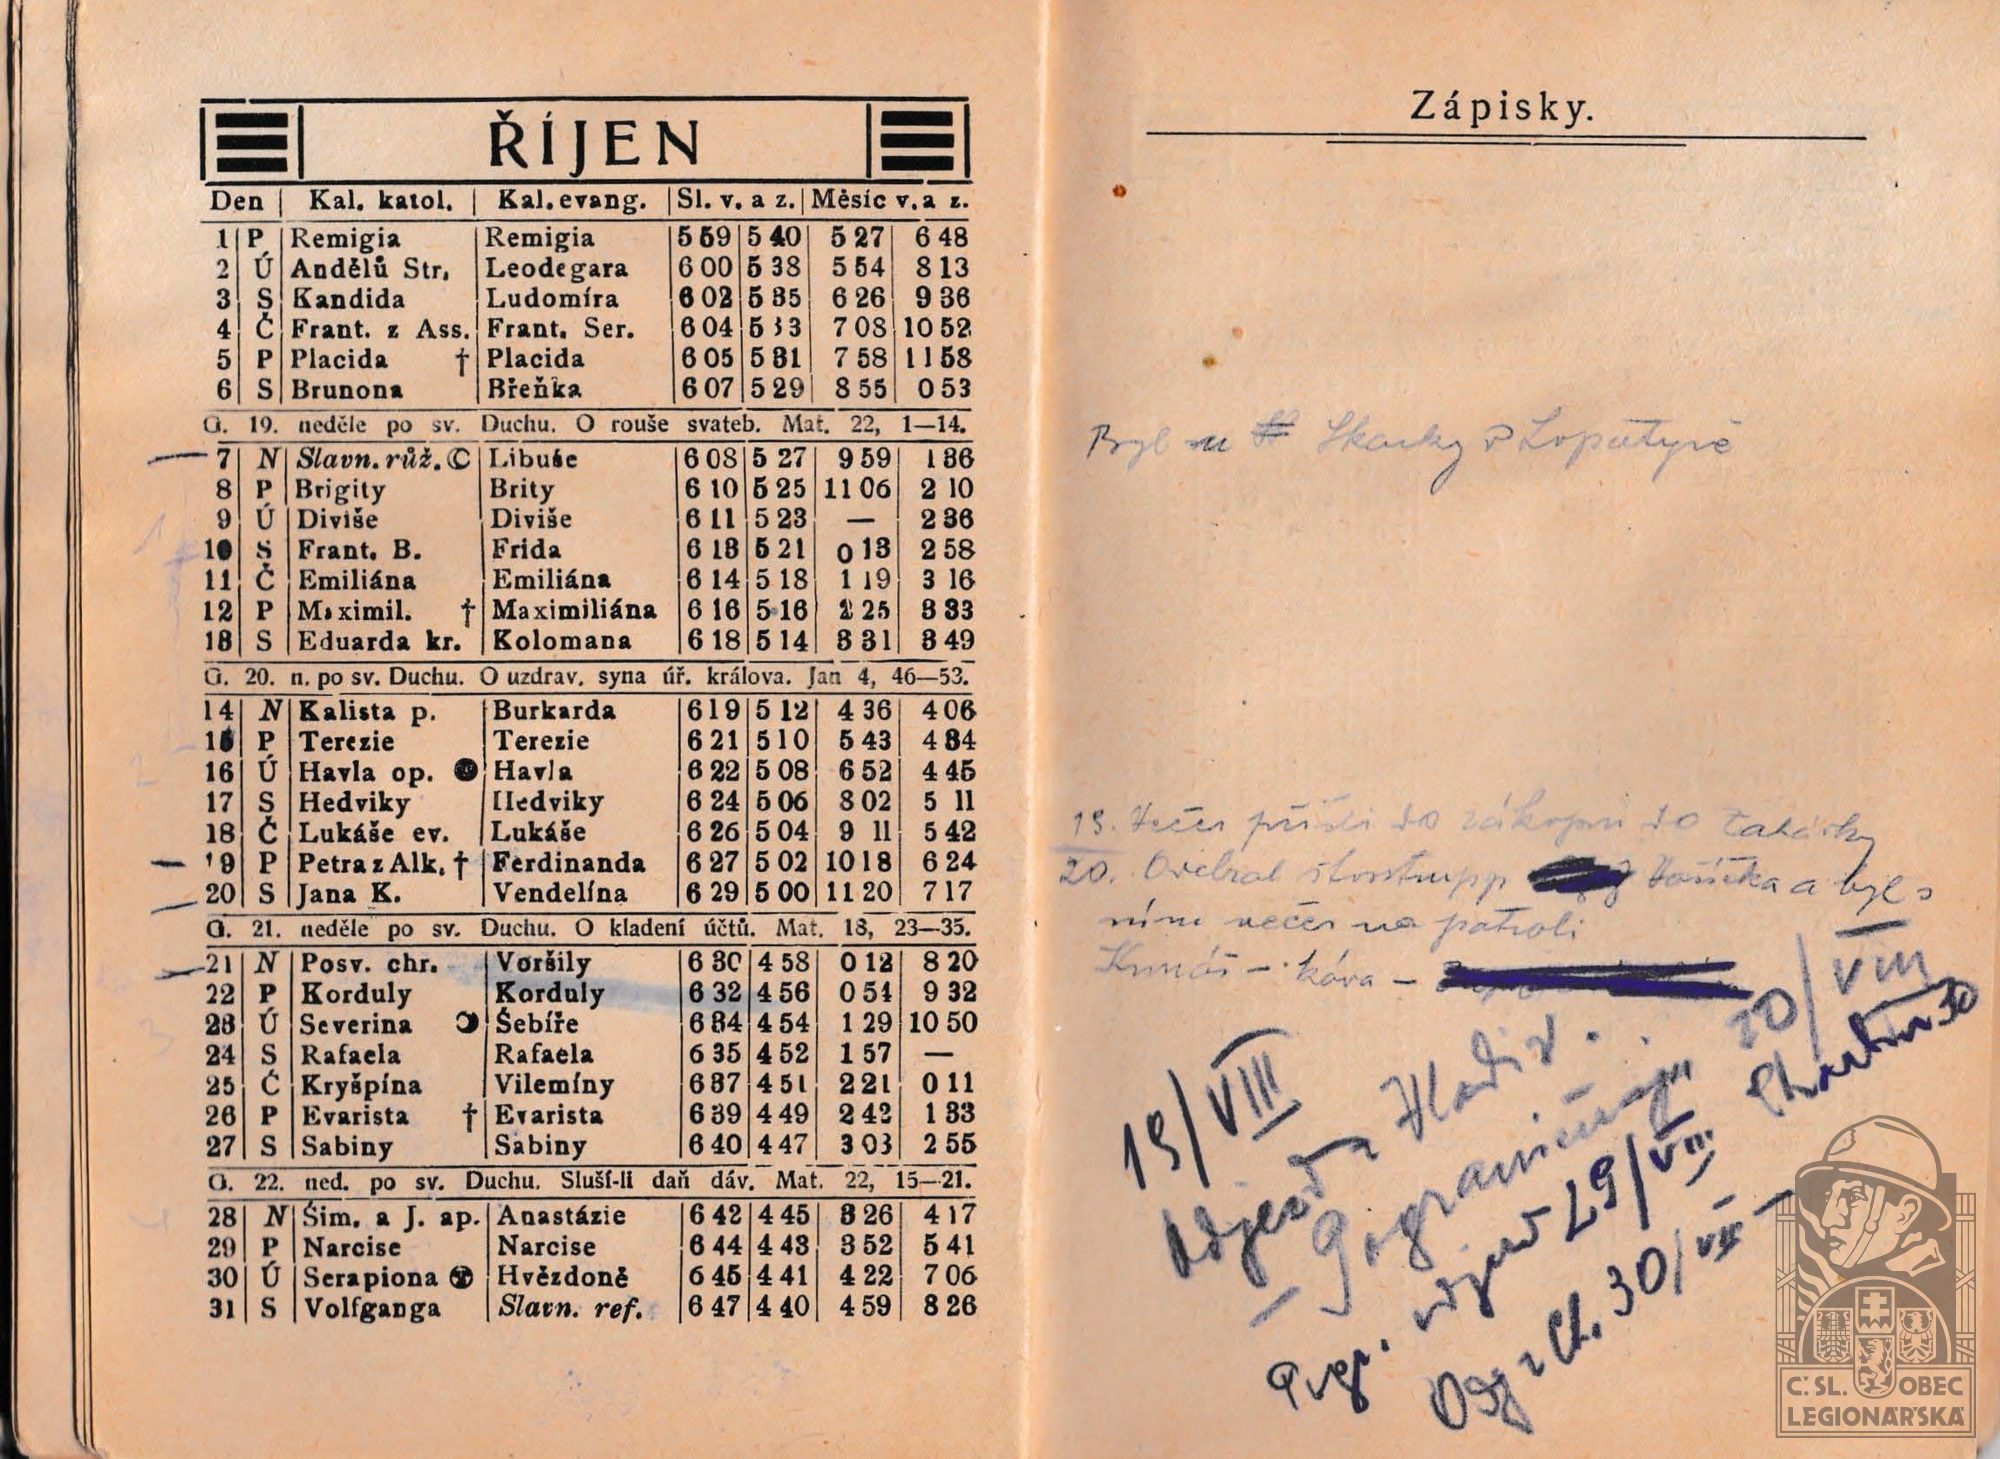 ŘÍJEN
Den | Kal. katol. | Kal. evang. | Sl. v. a z. | Měsíc v. a z.
1 P Remigia Remigia 5 59 5 40 5 27 6 48
2 Ú Andělů Str. Leodegara 6 00 5 38 5 54 8 13
3 S Kandida Ludomíra 6 02 5 35 6 26 9 36
4 Č Frant. z Ass. Frant. Ser. 6 04 5 33 7 08 10 52
5 P Placida † Placida 6 05 5 31 7 58 11 58
6 S Brunona Břeňka 6 07 5 29 8 55 0 53
G. 19. neděle po sv. Duchu. O rouše svateb. Mat. 22, 1—14.
7 N Slavn. růž. Libuše 6 08 5 27 9 59 1 36
8 P Brigity Brity 6 10 5 25 11 06 2 10
9 Ú Diviše Diviše 6 11 5 23 — 2 36
10 S Frant. B. Frida 6 13 5 21 0 13 2 58
11 Č Emiliána Emiliána 6 14 5 18 1 19 3 16
12 P Maximil. † Maximiliána 6 16 5 16 2 25 3 33
13 S Eduarda kr. Kolomana 6 18 5 14 3 31 3 49
G. 20. n. po sv. Duchu. O uzdrav. syna úř. králova. Jan 4, 46—53.
14 N Kalista p. Burkarda 6 19 5 12 4 36 4 06
15 P Terezie Terezie 6 21 5 10 5 43 4 34
16 Ú Havla op. Havla 6 22 5 08 6 52 4 45
17 S Hedviky Hedviky 6 24 5 06 8 02 5 11
18 Č Lukáše ev. Lukáše 6 26 5 04 9 11 5 42
19 P Petra z Alk. † Ferdinanda 6 27 5 02 10 18 6 24
20 S Jana K. Vendelína 6 29 5 00 11 20 7 17
G. 21. neděle po sv. Duchu. O kladení účtů. Mat. 18, 23—35.
21 N Posv. chr. Voršily 6 30 4 58 0 12 8 20
22 P Korduly Korduly 6 32 4 56 0 54 9 32
23 Ú Severina Šebíře 6 34 4 54 1 29 10 50
24 S Rafaela Rafaela 6 35 4 52 1 57 —
25 Č Kryšpína Vilemíny 6 37 4 51 2 21 0 11
26 P Evarista † Evarista 6 39 4 49 2 42 1 33
27 S Sabiny Sabiny 6 40 4 47 3 03 2 55
G. 22. ned. po sv. Duchu. Sluší-li daň dáv. Mat. 22, 15—21.
28 N Šim. a J. ap. Anastázie 6 42 4 45 3 26 4 17
29 P Narcise Narcise 6 44 4 43 3 52 5 41
30 Ú Serapiona Hvězdoně 6 45 4 41 4 22 7 06
31 S Volfganga Slavn. ref. 6 47 4 40 4 59 8 26
Zápisky.
Byl u Skarky v Lopatyně
19. Večer přišli do zákopů do
20. Odebral Vaříčka a byl s
ním večer na patroli
káva —
19/VIII
Odjezd z Vladiv.
30/VIII
odjezd 29/VIII
Odj z Ch. 30/VIII
Č. SL. OBEC
LEGIONÁŘSKÁ